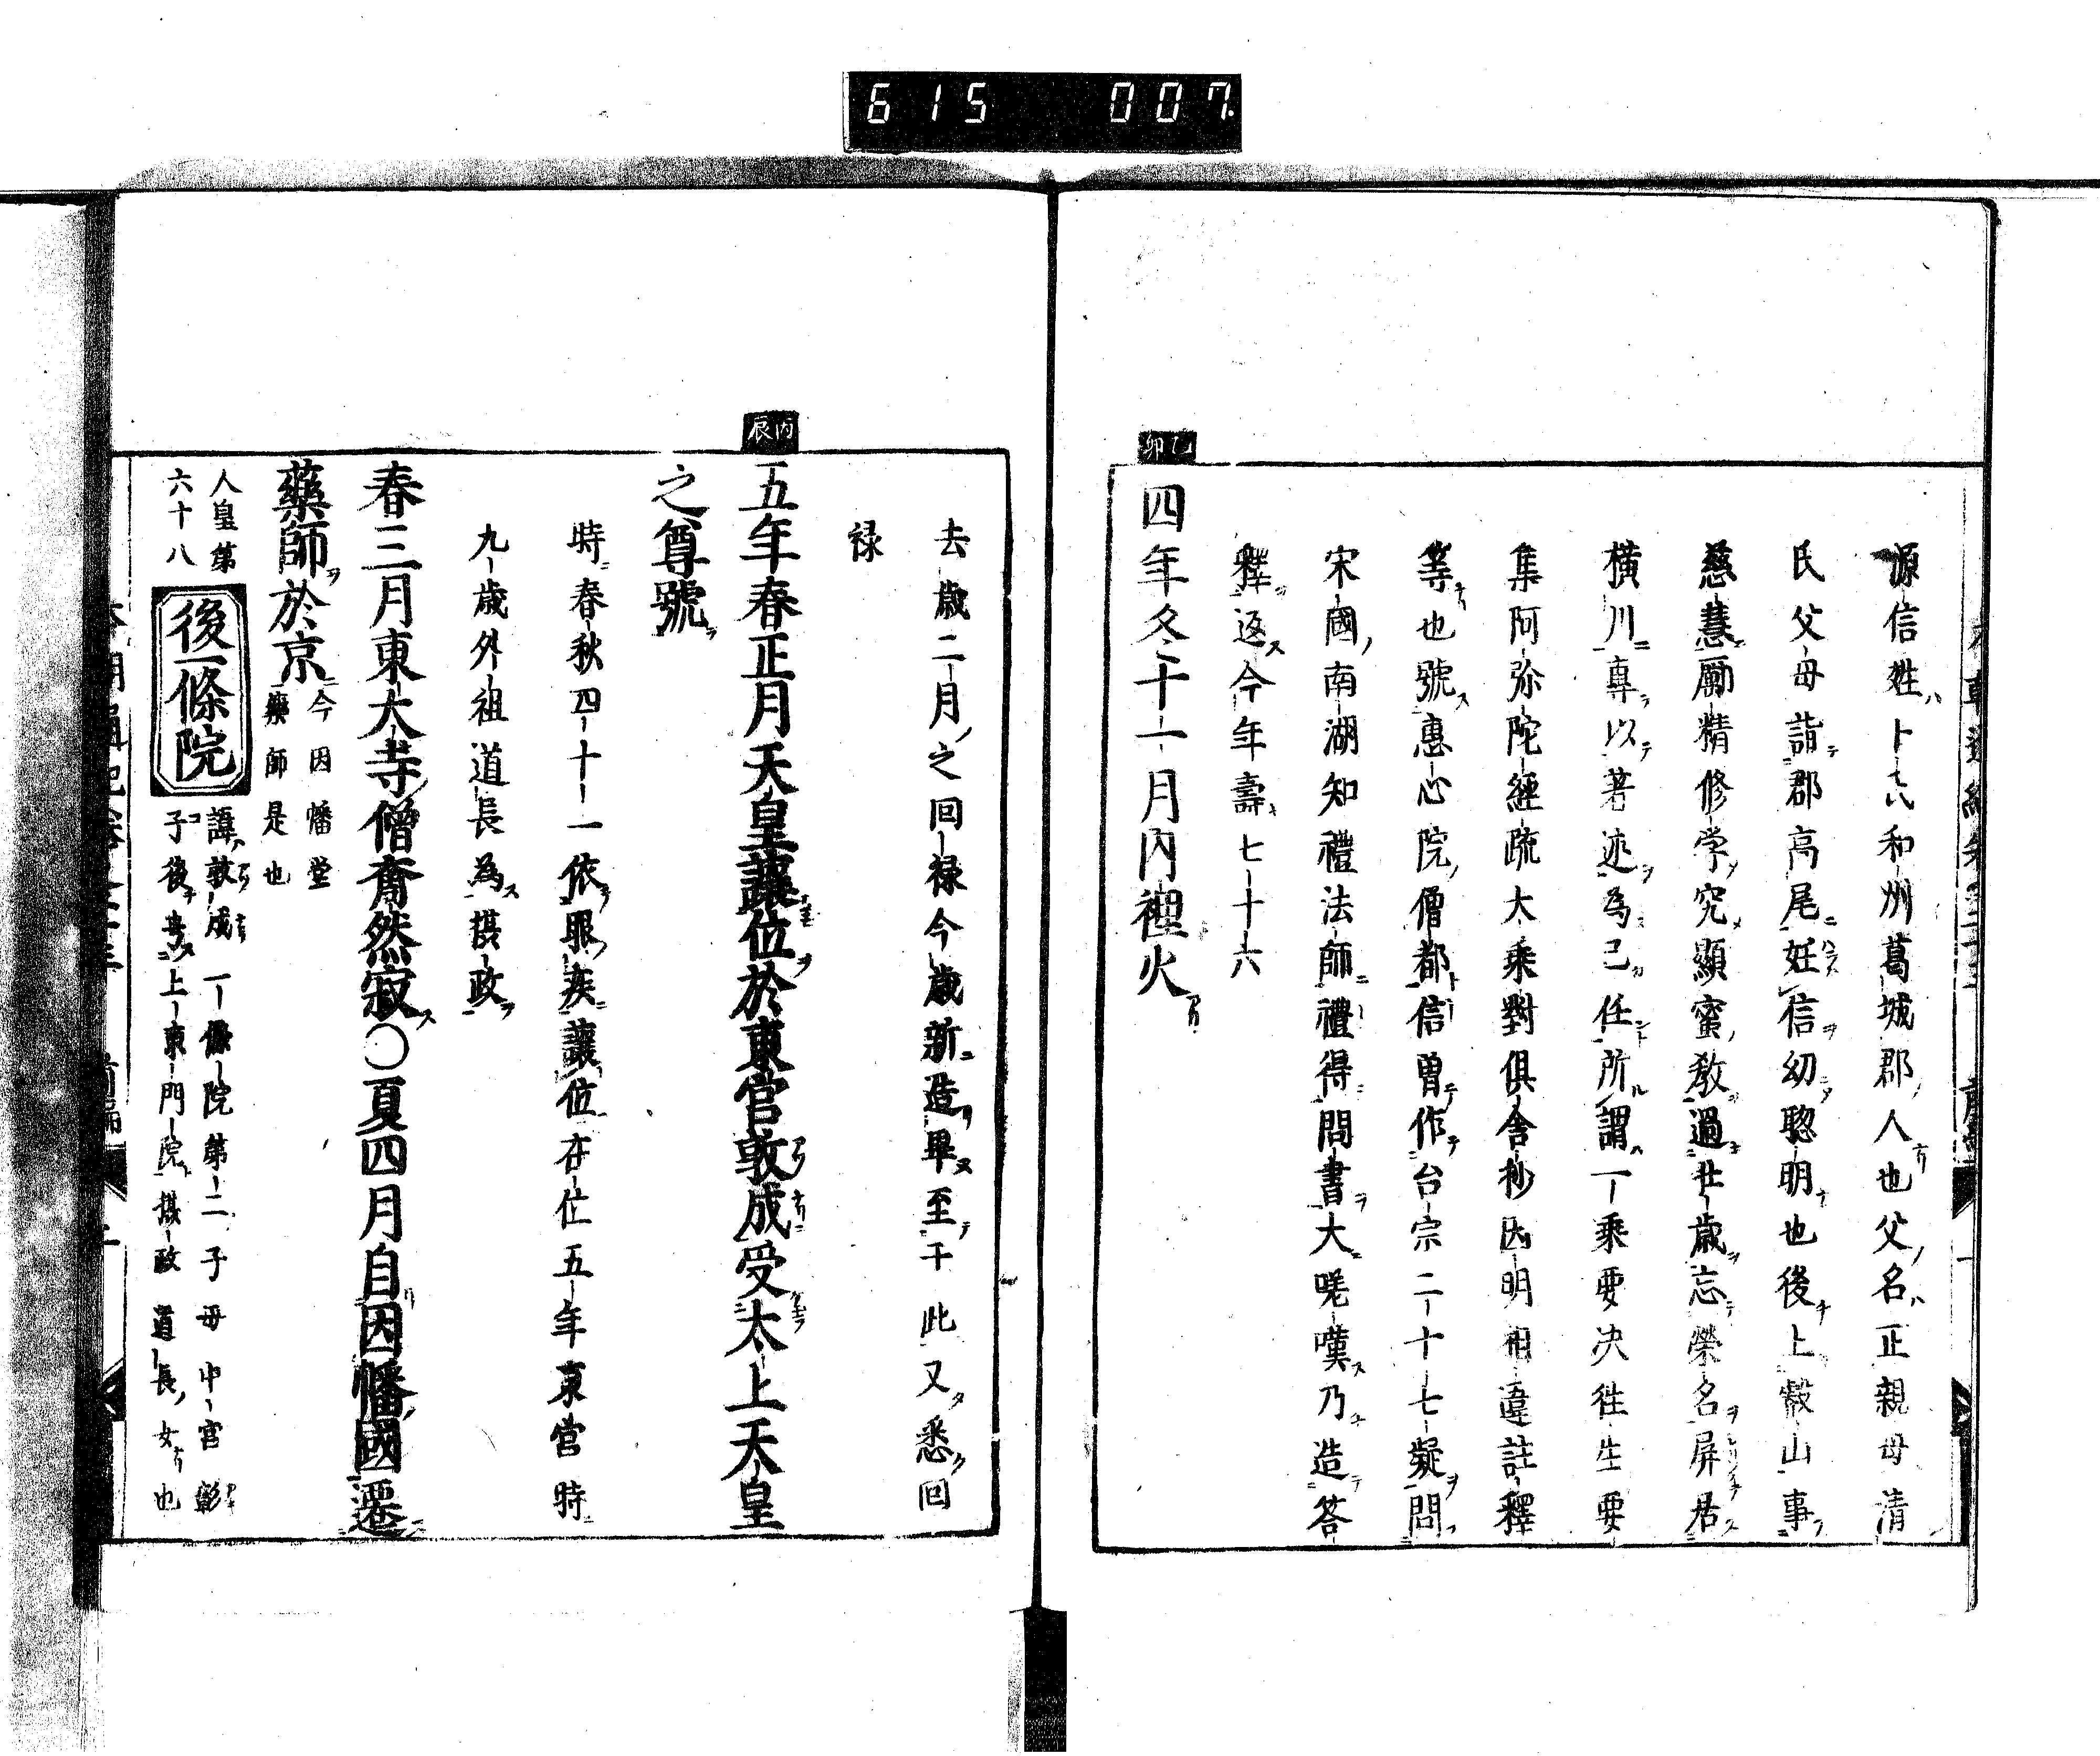 615 007
源信姓卜部和州葛城郡人也父名正親母清
氏父母詣郡高尾妊信幼聡明也後上叡山事
慈慧勵精修学究顯蜜教過壮歳忘榮名屏居
横川專以著述為己任所謂一乘要决徃生要
集阿弥陀經疏大乘對俱舎抄因明相違註釋
等也號惠心院僧都信曽作台宗二十七疑問
宋國南湖知禮法師禮得問書大嗟嘆乃造答
釋返今年壽七十六
乙卯
四年冬十一月内裡火
去歳二月之回禄今歳新造畢至于此又悉回
禄
丙辰
五年春正月天皇讓位於東宮敦成受太上天皇
之尊號
時春秋四十一依眼疾讓位在位五年東宮時
九歳外祖道長為摂政
春三月東大寺僧奝然寂〇夏四月自因幡國遷
藥師於京
今因幡堂
藥師是也
人皇第
六十八
後一條院
諱敦成一條院第二子母中宮彰
子後号上東門院摂政道長女也